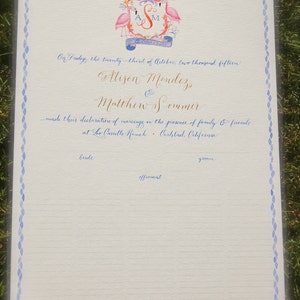 S
A M
On Friday, the twenty-third of October, two thousand fifteen
Alison Mendez,
&
Matthew Sommer
made their declaration of marriage in the presence of family & friends
at Ranch ~ Carlsbad, California
bride groom
officiant